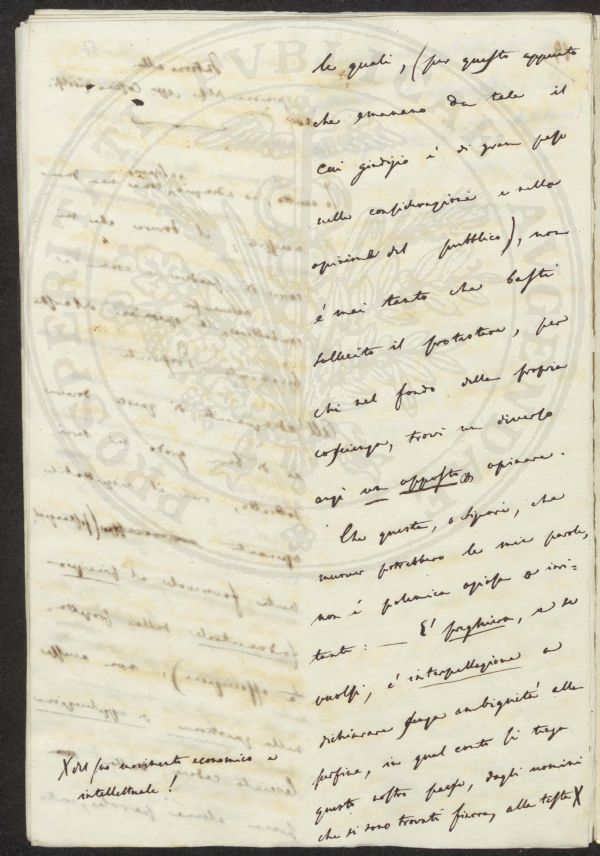 le quali, (per questo appunto
che emanano da tale il
cui giudizio è di gran peso
nella considerazione e nella
opinione del pubblico), non
è mai tanto che basti
sollecito il protestare, per
chi nel fondo della propria
coscienza, trovi un diverso
anzi un opposto opinare.
Che questa, o Signori, che
muover potrebbero le mie parole,
non è polemica oziosa o irri-
tante: — È preghiera, e se
vuolsi, è interpellazione a
dichiarare senza ambiguità alla
perfine, in qual conto si tenga
questo nostro paese, dagli uomini
che si sono trovati finora, alla testa X
X del suo movimento economico e
intellettuale!
PROSPERITATI PVBLICAE AVGENDAE